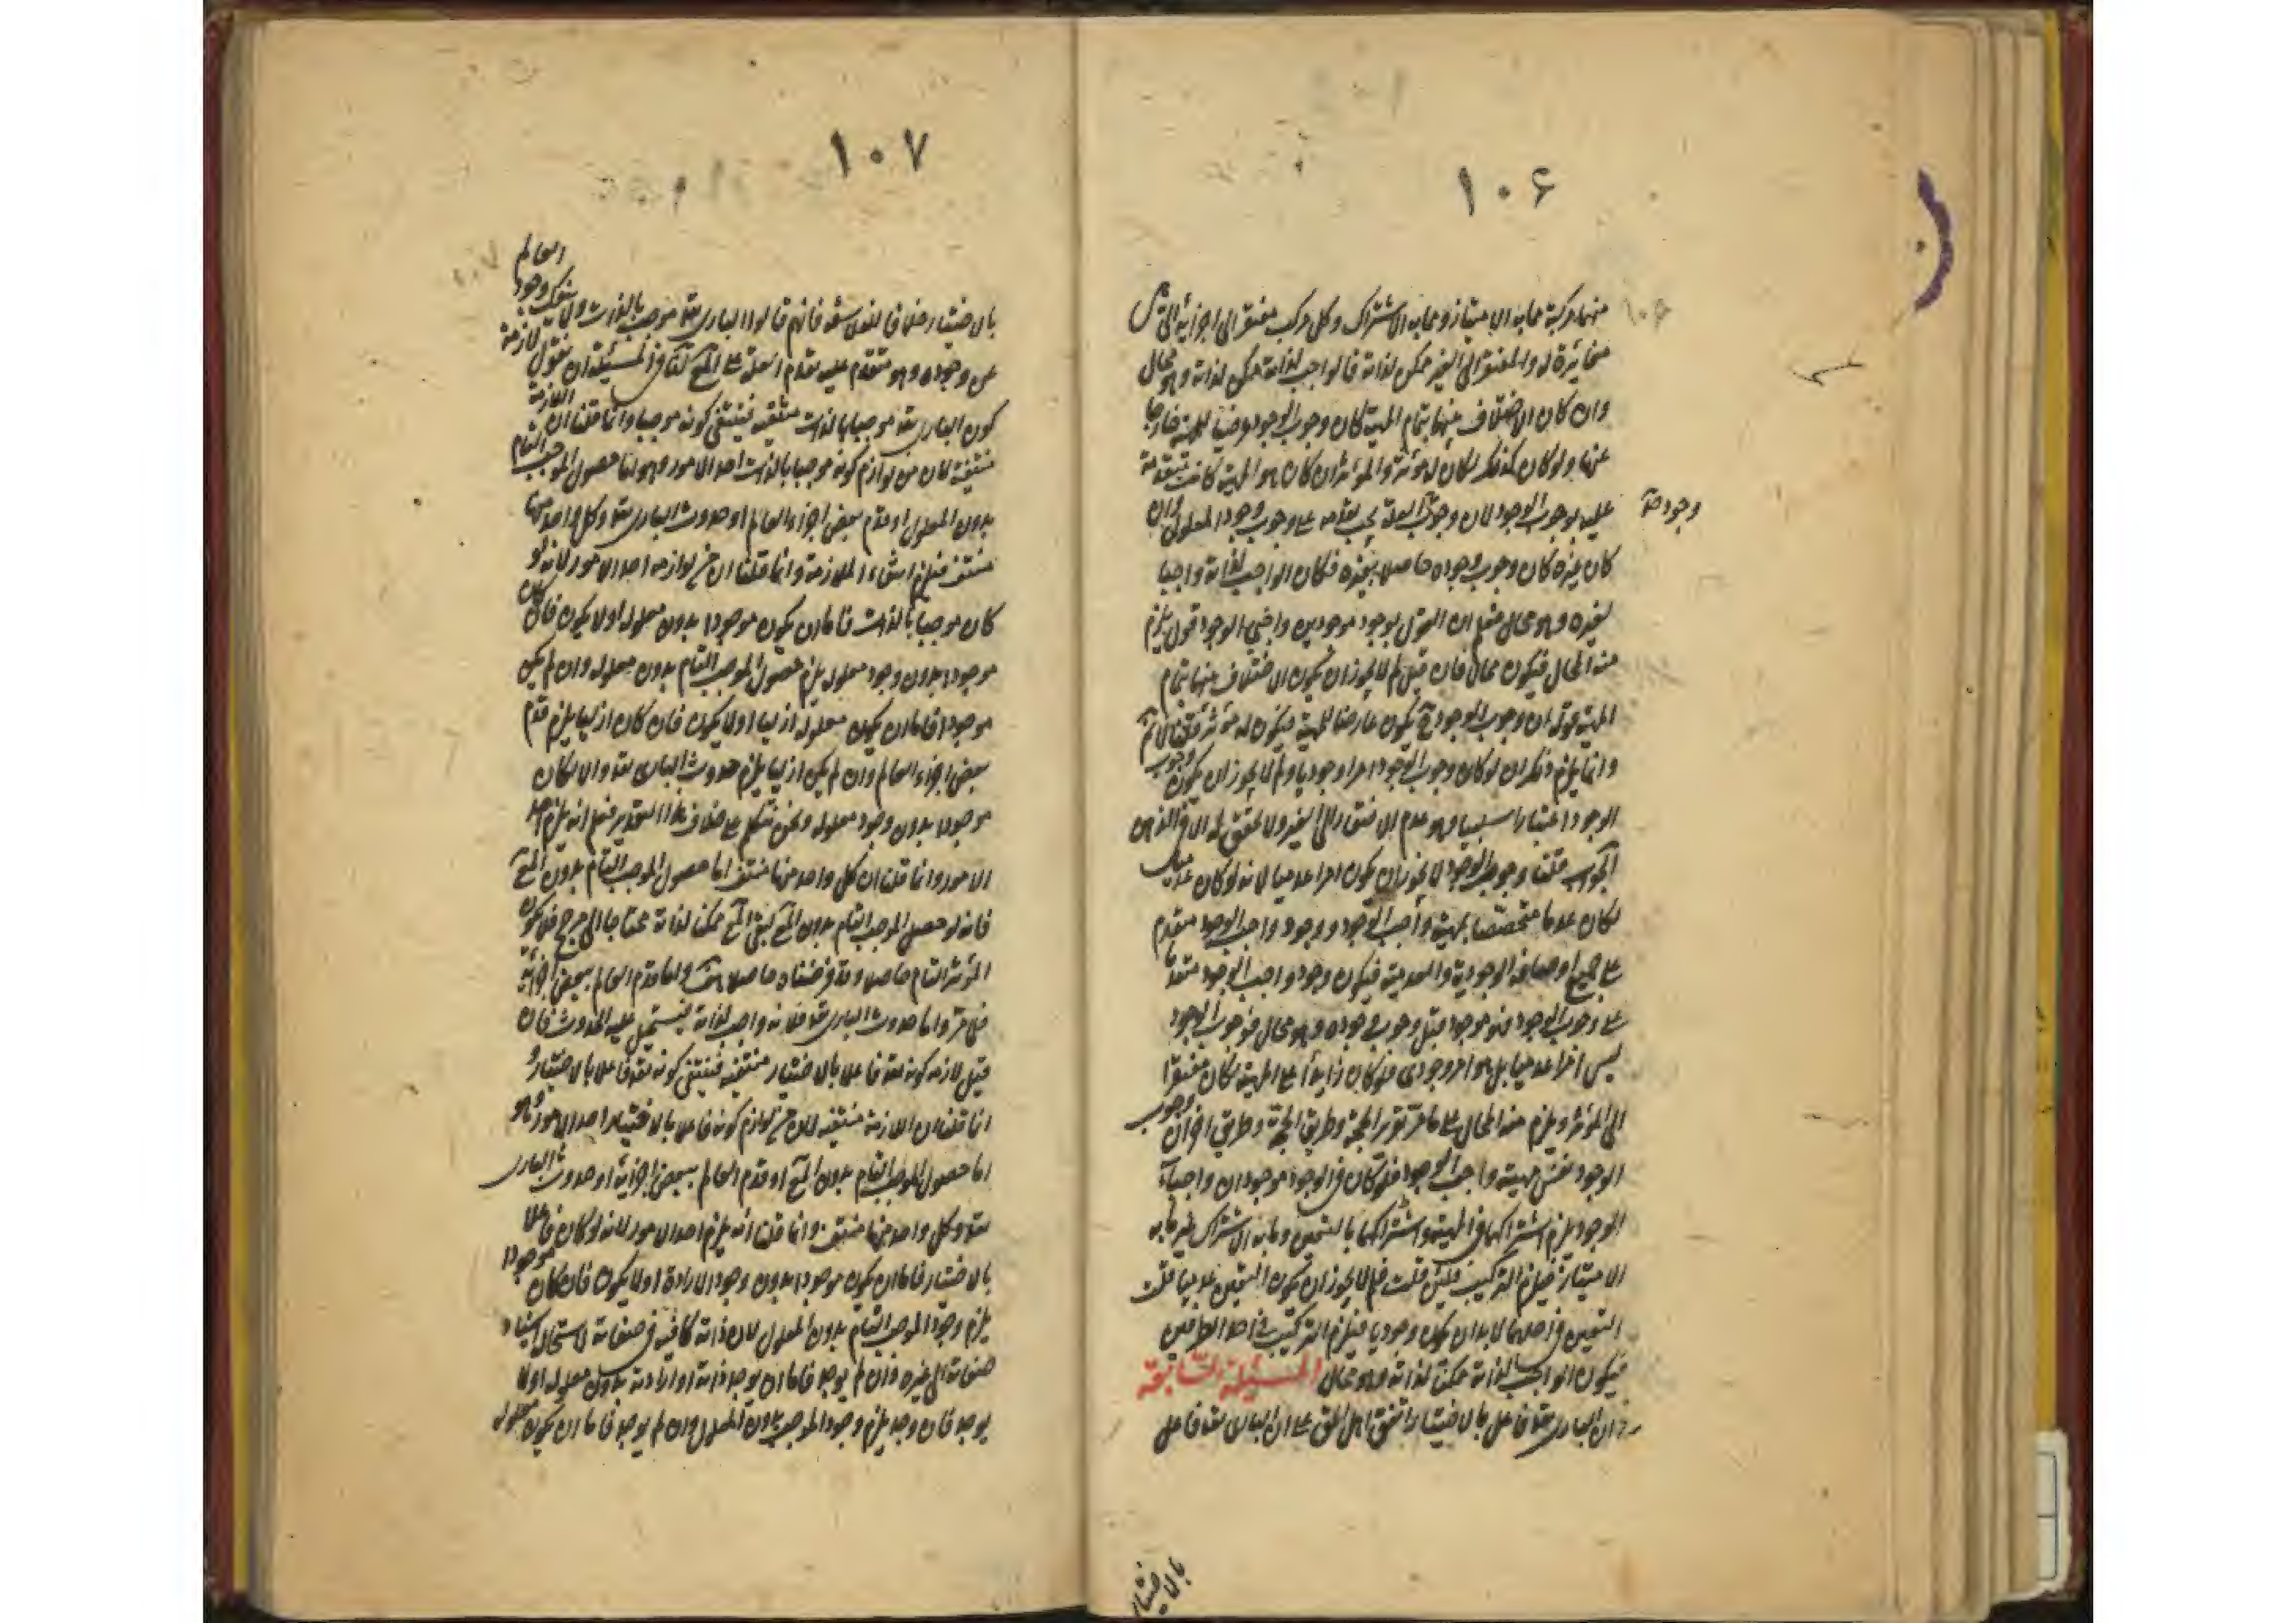 ١٠۶
منهما مركبة مما به الامتياز ومما به الاشتراك وكل مركب مفتقر الى اجزائه التى هى
مغائرة له والمفتقر الى الغير ممكن لذاته فالواجب لذاته ممكن لذاته وهو محال
وان كان الاختلاف بينهما بتمام المهية كان وجوب الوجود عرضيا للمهية خارجا
عنها ولو كان كذلك لكان له مؤثر والمؤثر ان كان هو المهية كانت متقدمة
عليه بوجوب الوجود لان وجوب العلة يجب تقدمه على وجوب وجود المعلول وان
وجود صح
كان غيره كان وجوب وجوده حاصلا بغيره فكان الواجب لذاته واجبا
لغيره وهو محال فعلم ان القول بوجود موجودين واجبى الوجود قول يلزم
منه المحال فيكون محالا فان قيل لم لا يجوز ان يكون الاختلاف بينهما بتمام
المهية قوله ان وجوب الوجود ح يكون عارضا للمهية فيكون له مؤثر قلنا لا نم
وانما يلزم ذلك ان لو كان وجوب الوجود امرا وجوديا ولم لا يجوز ان يكون وجوب
الوجود اعتبارا سلبيا وهو عدم الافتقار الى الغير ولا تحقق له الا فى الذهن
الجواب قلنا وجوب الوجود لا يجوز ان يكون امرا عدميا لانه لو كان عدميا
لكان عدما متخصصا بمهية واجب الوجود ووجود واجب الوجود متقدم
على جميع اوصافه الوجودية والعدمية فيكون وجود واجب الوجود متقدما
على وجوب الوجود فهو موجود قبل وجوب وجوده وهو محال فوجوب الوجود
ليس امرا عدميا بل هو امر وجودى فلو كان زايدا على المهية لكان مفتقرا
الى المؤثر ويلزم منه المحال على ما مر تقرير الحجة وطريق الحجة وطريق اخر ان وجوب
الوجود نفس مهية واجب الوجود فلو كان فى الوجود موجودان واجبا
الوجود يلزم اشتراكهما فى المهية واشتراكهما بالتعين وما به الاشتراك غير ما به
الامتياز فيلزم التركيب فلئن قلت فلم لا يجوز ان يكون التعين عدميا قلت
التعين فى احدهما لا بد ان يكون وجوديا فيلزم التركيب فى احد الطرفين
فيكون الواجب لذاته ممكنا لذاته وهو محال المسئيلة السابعة
ان البارى تعة فاعل بالاختيار اتفق اهل الحق على ان البارى تعة فاعل
بالاختيار
١٠٧
بالاختيار خلافا للفلاسفة فانهم قالوا البارى تعة موجب بالذات ولا ينفك وجود العالم
عن وجوده وهو متقدم عليه تقدم العلة على المع لنا فى المسئيلة ان نقول لازمة
كون البارى تعة موجبا بالذات منتفية فينتفى كونه موجبا وانما قلنا ان اللازمة
منتفية لان من لوازم كونه موجبا بالذات احد الامور وهو اما حصول الموجب التام
بدون المعلول او قدم بعض اجزاء العالم او حدوث البارى تعة وكل واحد منها
منتف فيلزم انتفاء الملازمة وانما قلنا ان من لوازمه احد الامور لانه لو
كان موجبا بالذات فاما ان يكون موجودا بدون معلوله اولا يكون فان كان
موجودا بدون وجود معلوله يلزم حصول الموجب التام بدون معلوله وان لم يكن
موجودا فاما ان يكون معلوله ازليا اولا يكون فان كان ازليا يلزم قدم
بعض اجزاء العالم وان لم يكن ازليا يلزم حدوث البارى تعة والا لكان
موجودا بدون وجود معلوله ونحن نتكلم على خلاف هذا التقدير فعلم انه يلزم احد
الامور وانما قلنا ان كل واحد منها منتف اما حصول الموجب التام بدون المع
فانه لو حصل الموجب التام بدون المع لبقى المع ممكنا لذاته محتاجا الى مرجح فلا يكون
المؤثر التام حاصلا وقد فرضناه حاصلا هف واما قدم العالم ببعض اجزائه
فلما مر واما حدوث البارى تعة فلانه واجب لذاته فيستحيل عليه الحدوث فان
قيل لازمه كونه تعة فاعلا بالاختيار منتفية فينتفى كونه تعة فاعلا بالاختيار و
انما قلنا ان اللازمة منتفية لان من لوازم كونه فاعلا بالاختيار احد الامور وهو
اما حصول الموجب التام بدون المع او قدم العالم ببعض اجزائه او حدوث البارى
تعة وكل واحد منها منتف وانما قلنا انه يلزم احد الامور لانه لو كان فاعلا
بالاختيار فاما ان يكون موجودا بدون وجود الارادة اولا يكون فان كان موجودا
يلزم وجود الموجب التام بدون المعلول لان ذاته كافية فى صفاته لاستحالة استناد
صفاته الى غيره وان لم يوجد فاما ان يوجد ذاته او ارادته بدون معلوله اولا
يوجد فان وجد يلزم وجود الموجب بدون المعلول وان لم يوجد فاما ان يكون معلوله